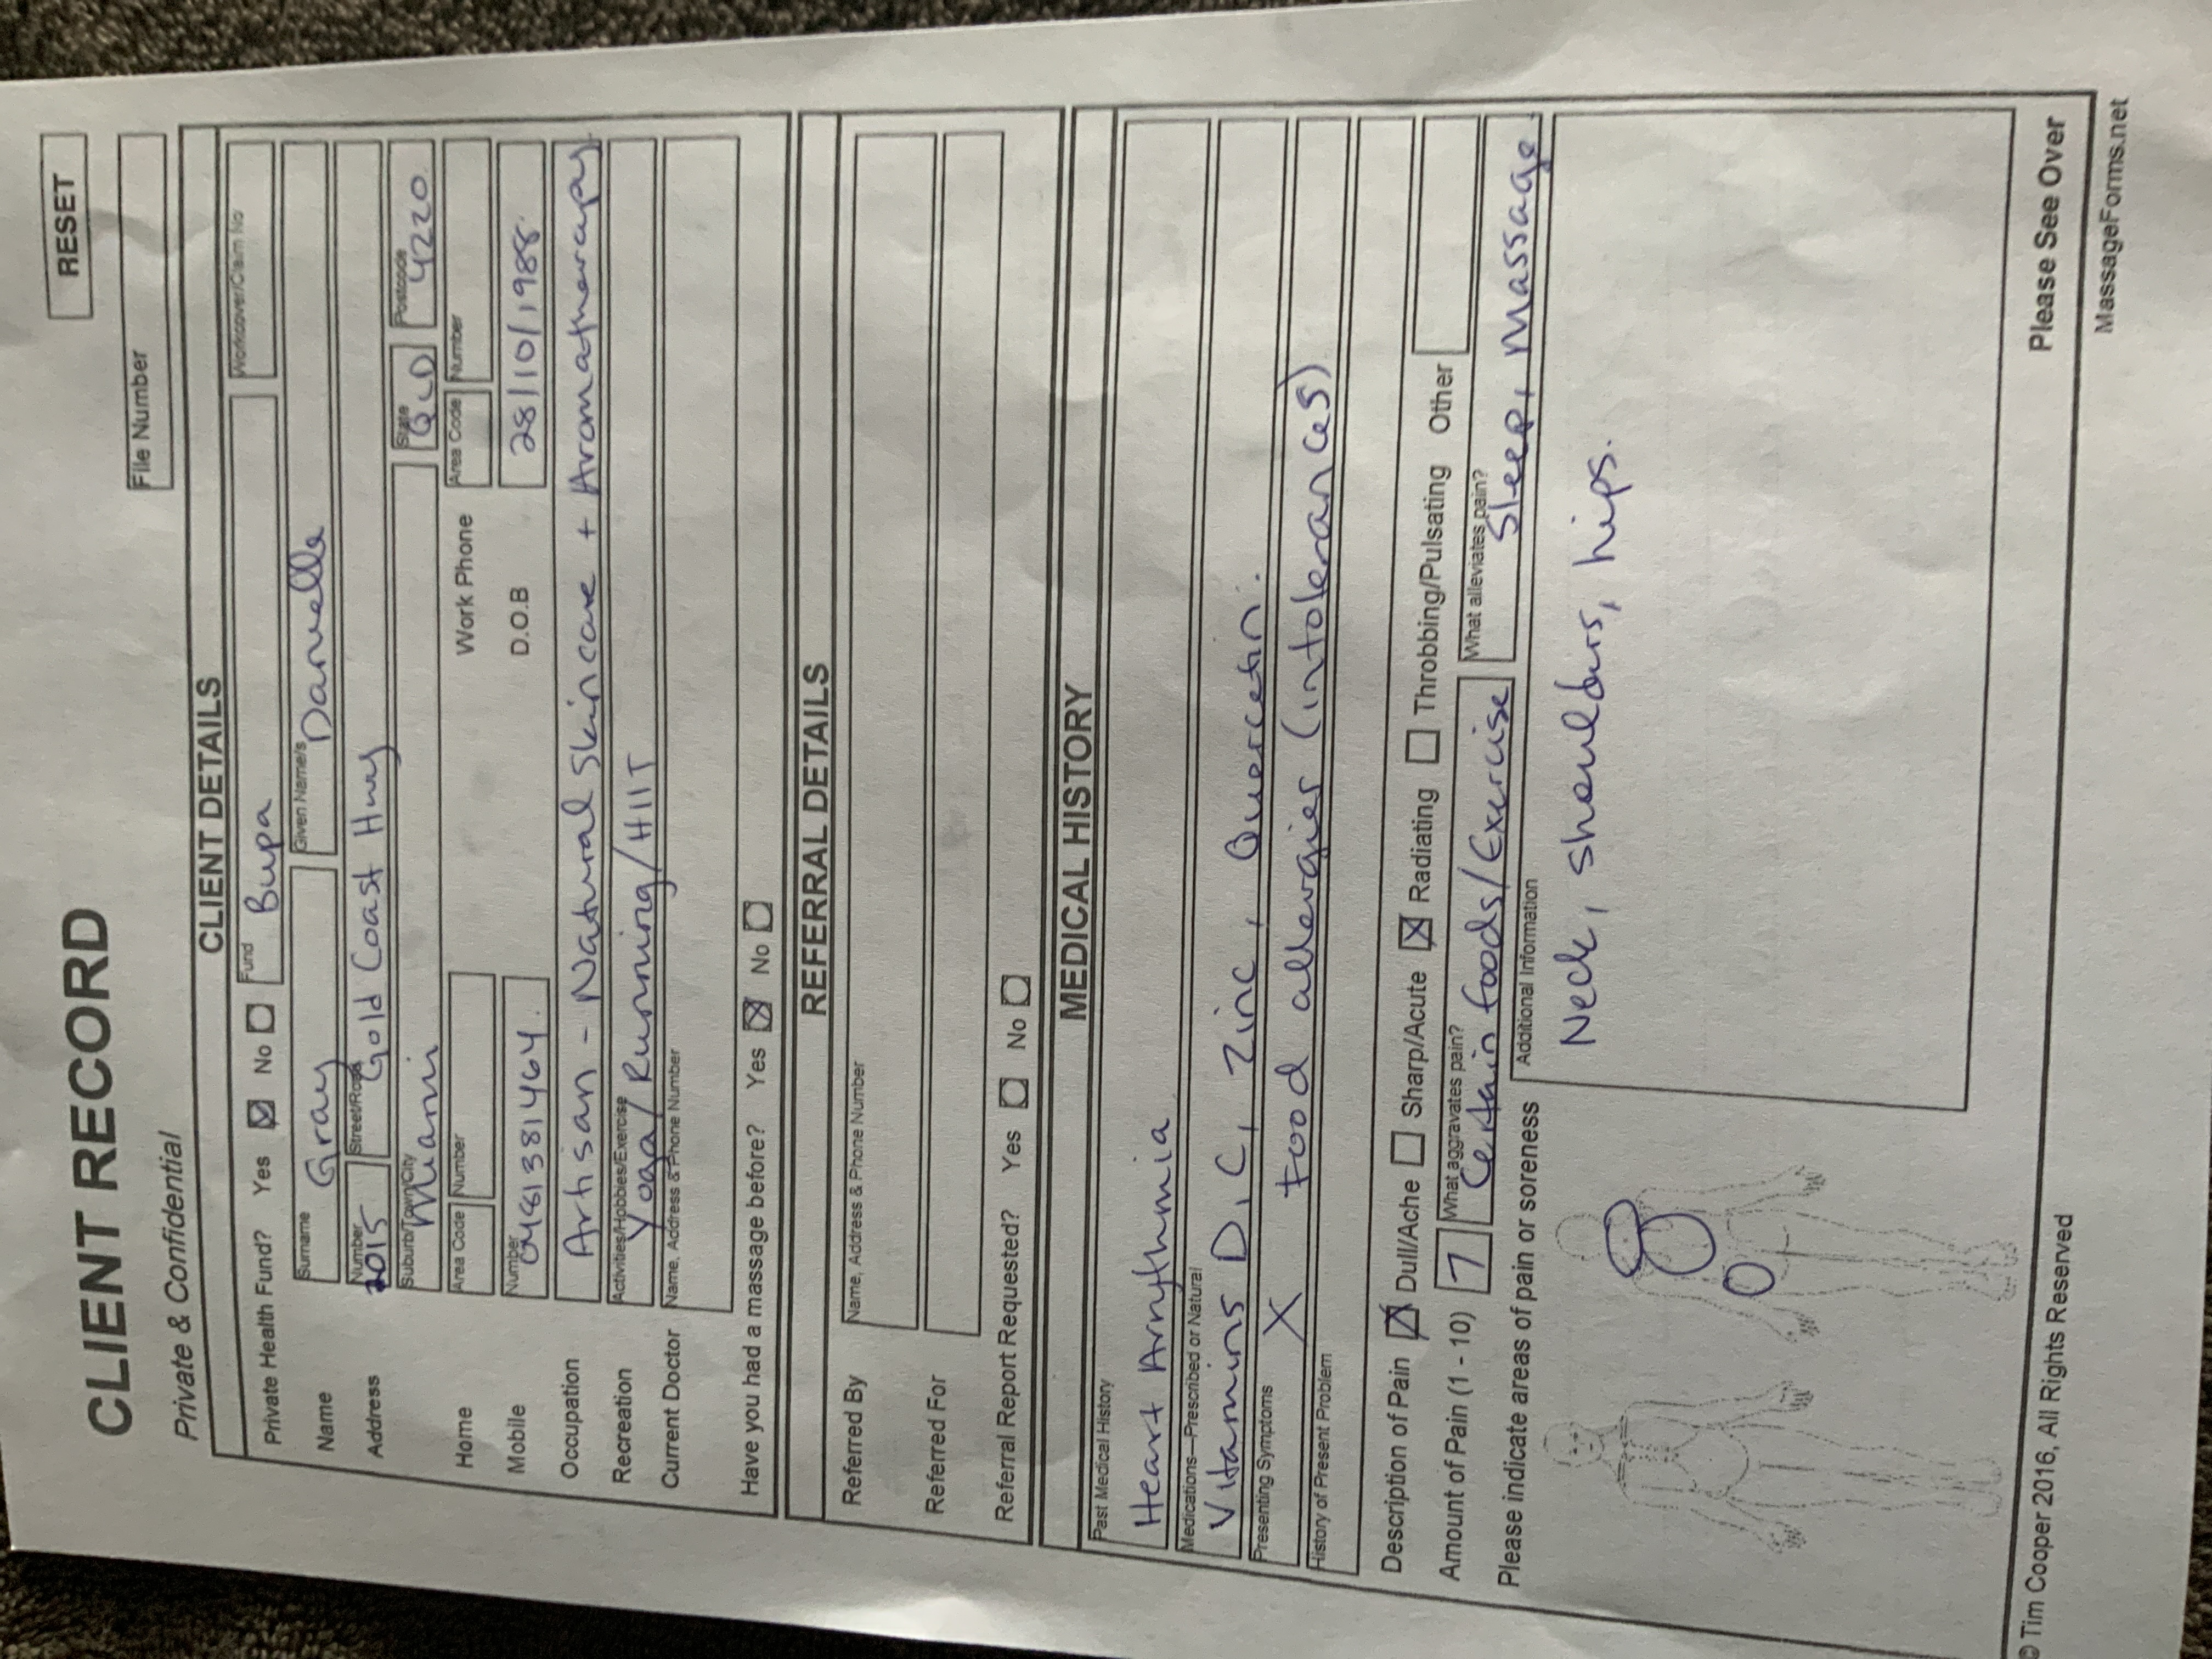 RESET
CLIENT RECORD
Private & Confidential
File Number
CLIENT DETAILS
Private Health Fund? Yes No Fund Bupa Workcover/Claim No
Name Surname Gray Given Name/s Danielle
Address Number 2015 Street/Road Gold Coast Hwy
Suburb/Town/City Miami State QLD Postcode 4220
Home Area Code Number Work Phone Area Code Number
Mobile Number 0481381464. D.O.B 28/10/1988
Occupation Artisan - Natural Skincare + Aromatherapy
Recreation Activities/Hobbies/Exercise Yoga/Running/HIIT
Current Doctor Name, Address & Phone Number
Have you had a massage before? Yes No
REFERRAL DETAILS
Referred By Name, Address & Phone Number
Referred For
Referral Report Requested? Yes No
MEDICAL HISTORY
Past Medical History
Heart Arrhythmia
Medications—Prescribed or Natural
Vitamins D, C, Zinc, Quercetin.
Presenting Symptoms X Food allergies (intolerances)
History of Present Problem
Description of Pain Dull/Ache Sharp/Acute Radiating Throbbing/Pulsating Other
Amount of Pain (1 - 10) 7 What aggravates pain? Certain foods/Exercise What alleviates pain? Sleep, Massage.
Please indicate areas of pain or soreness Additional Information
Neck, shoulders, hips.
Please See Over
© Tim Cooper 2016, All Rights Reserved MassageForms.net